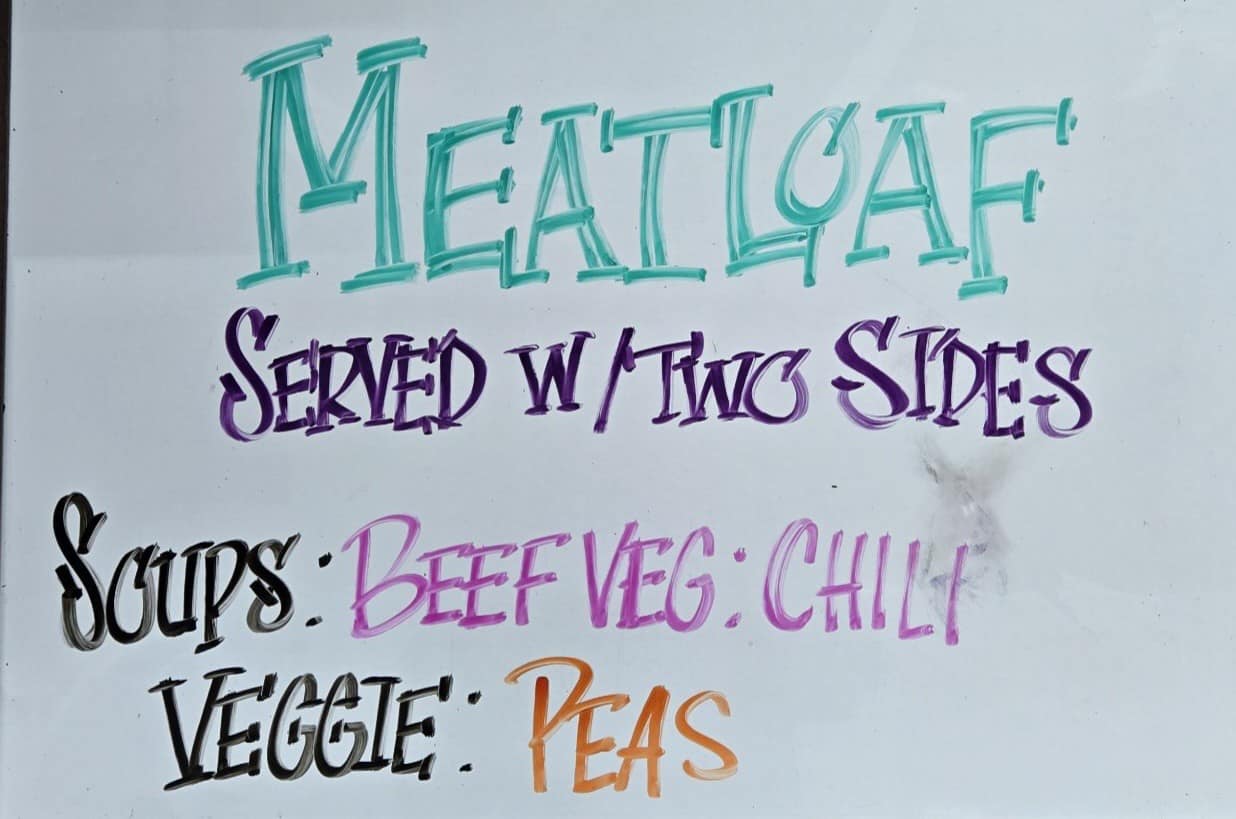 MEATLOAF
SERVED W/TWO SIDES
SOUPS: BEEF VEG: CHILI
VEGGIE: PEAS